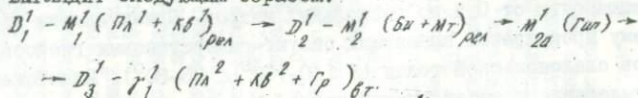 D₁¹ – M₁¹ (Пл¹ + Кв¹)рел → D₂¹ – M₂¹ (Би + Мт)рел → M₂ₐ¹ (Гип) →
→ D₃¹ – γ₁¹ (Пл² + Кв² + Гр)вт.